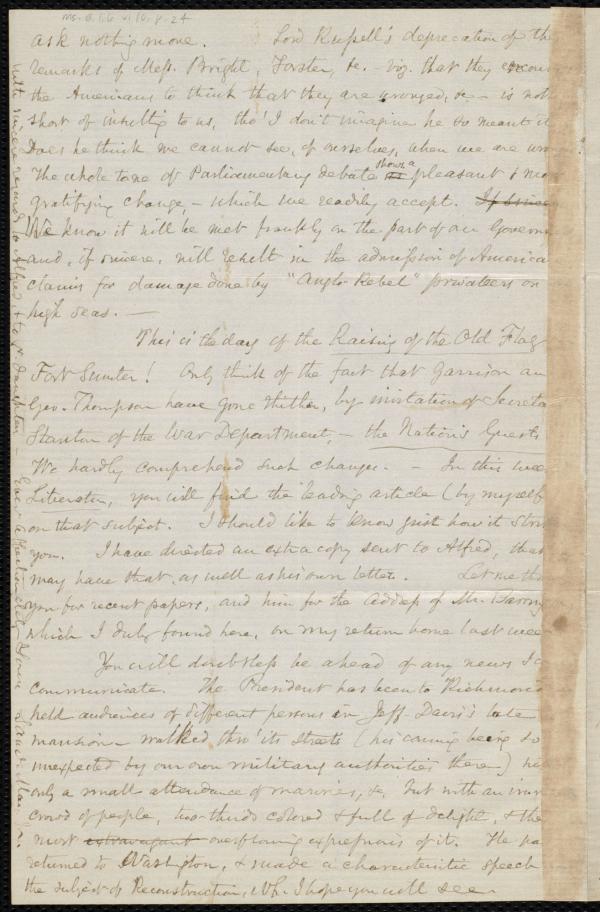 Ms. B.1.6 v.10, p. 24
ask nothing more. Lord Russell's deprecation of the
remarks of Mess. Bright, Forster, &c. – viz. that they encour
the Americans to think that they are wronged, &c – is not
short of insulting to us, tho' I don't imagine he so meant it
Does he think we cannot see, of ourselves, when we are wron
The whole tone of Parliamentary debate shows a pleasant & mos
gratifying change, – which we readily accept. If since
We know it will be met frankly on the part of our Governm
and, if sincere, will result in the admission of America
claims for damage done by "Anglo-Rebel" privateers on
high seas. —
This is the day of the Raising of the Old Flag
Fort Sumter! Only think of the fact that Garrison an
Geo. Thompson have gone thither, by invitation of Secreta
Stanton of the War Department, – the Nation's Guests
We hardly comprehend such changes. – In this wee
Liberator, you will find the leading article (by myself
on that subject. I should like to know just how it stru
you. I have directed an extra copy sent to Alfred, that
may have that, as well as his own letter. Let me th
you for recent papers, and him for the Address of Mr.
which I duly found here, on my return home last wee
You will doubtless be ahead of any news I c
communicate. The President has been to Richmond
held audiences of different persons in Jeff. Davis's late
mansion – walked thro' its streets (his coming being so
unexpected by our own military authorities there) w
only a small attendance of marines, &c, but with an imm
crowd of people, two-thirds colored & full of delight, & the
most extravagant overflowing expressions of it. He ha
returned to Washington, & made a characteristic speech
the subject of Reconstruction, wh. I hope you will see.
with sincere regards to Alfred, & to yr. daughters – Ever affectionately Yours Saml. May Jr.